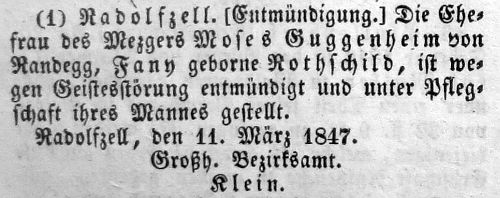 (1) Radolfzell. [Entmündigung.] Die Ehe-
frau des Mezgers Moses Guggenheim von
Randegg, Fany geborne Rothschild, ist we-
gen Geistesstörung entmündigt und unter Pfleg-
schaft ihres Mannes gestellt.
Radolfzell, den 11. März 1847.
Großh. Bezirksamt.
Klein.